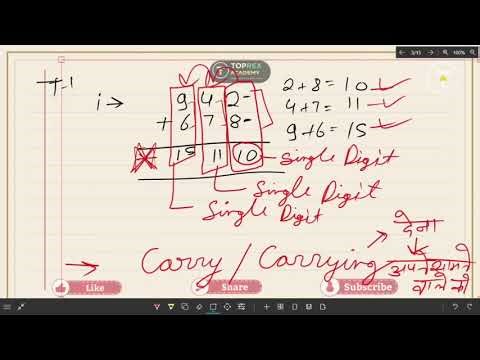 3/15
100%
TOPREX
ACADEMY
T-1
i → 9 4 2 -
+ 6 7 8 -
15 11 10
2+8=10 ✓
4+7=11 ✓
9+6=15 ✓
Single Digit
Single Digit
Single Digit
→ Carry / Carrying
देना
अपने सामने
वाले को
Like
Share
Subscribe